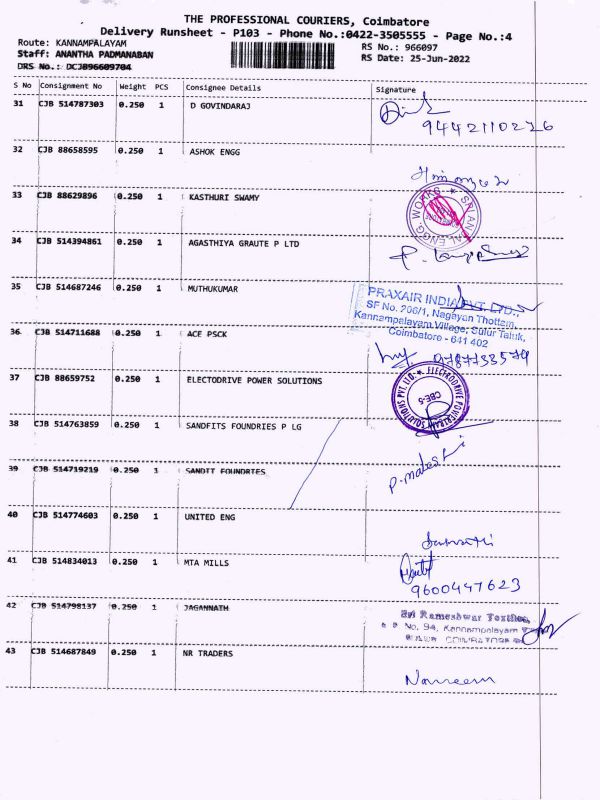 THE PROFESSIONAL COURIERS, Coimbatore
Delivery Runsheet - P103 - Phone No.:0422-3505555 - Page No.:4
Route: KANNAMPALAYAM
RS No.: 966097
Staff: ANANTHA PADMANABAN
RS Date: 25-Jun-2022
DRS No.: DCJB96609704
S No Consignment No Weight PCS Consignee Details Signature
31 CJB 514787303 0.250 1 D GOVINDARAJ
9442110276
32 CJB 88658595 0.250 1 ASHOK ENGG
33 CJB 88629896 0.250 1 KASTHURI SWAMY
ENGG. WORKS
34 CJB 514394861 0.250 1 AGASTHIYA GRAUTE P LTD
35 CJB 514687246 0.250 1 MUTHUKUMAR
PRAXAIR INDIA PVT. LTD.,
SF No. 206/1, Nagayan Thottam,
Kannampalayam Village, Sulur Taluk,
Coimbatore - 641 402
36 CJB 514711688 0.250 1 ACE PSCK
37 CJB 88659752 0.250 1 ELECTODRIVE POWER SOLUTIONS
ELECTRODRIVE POWERTRAIN SOLUTIONS PVT. LTD.
CBE-5
38 CJB 514763859 0.250 1 SANDFITS FOUNDRIES P LG
39 CJB 514719219 0.250 1 SANDIT FOUNDRIES
40 CJB 514774603 0.250 1 UNITED ENG
41 CJB 514834013 0.250 1 MTA MILLS
9600447623
42 CJB 514798137 0.250 1 JAGANNATH
Sri Rameshwar Textiles,
No. 94, Kannampalayam
COIMBATORE
43 CJB 514687849 0.250 1 NR TRADERS
Nareem